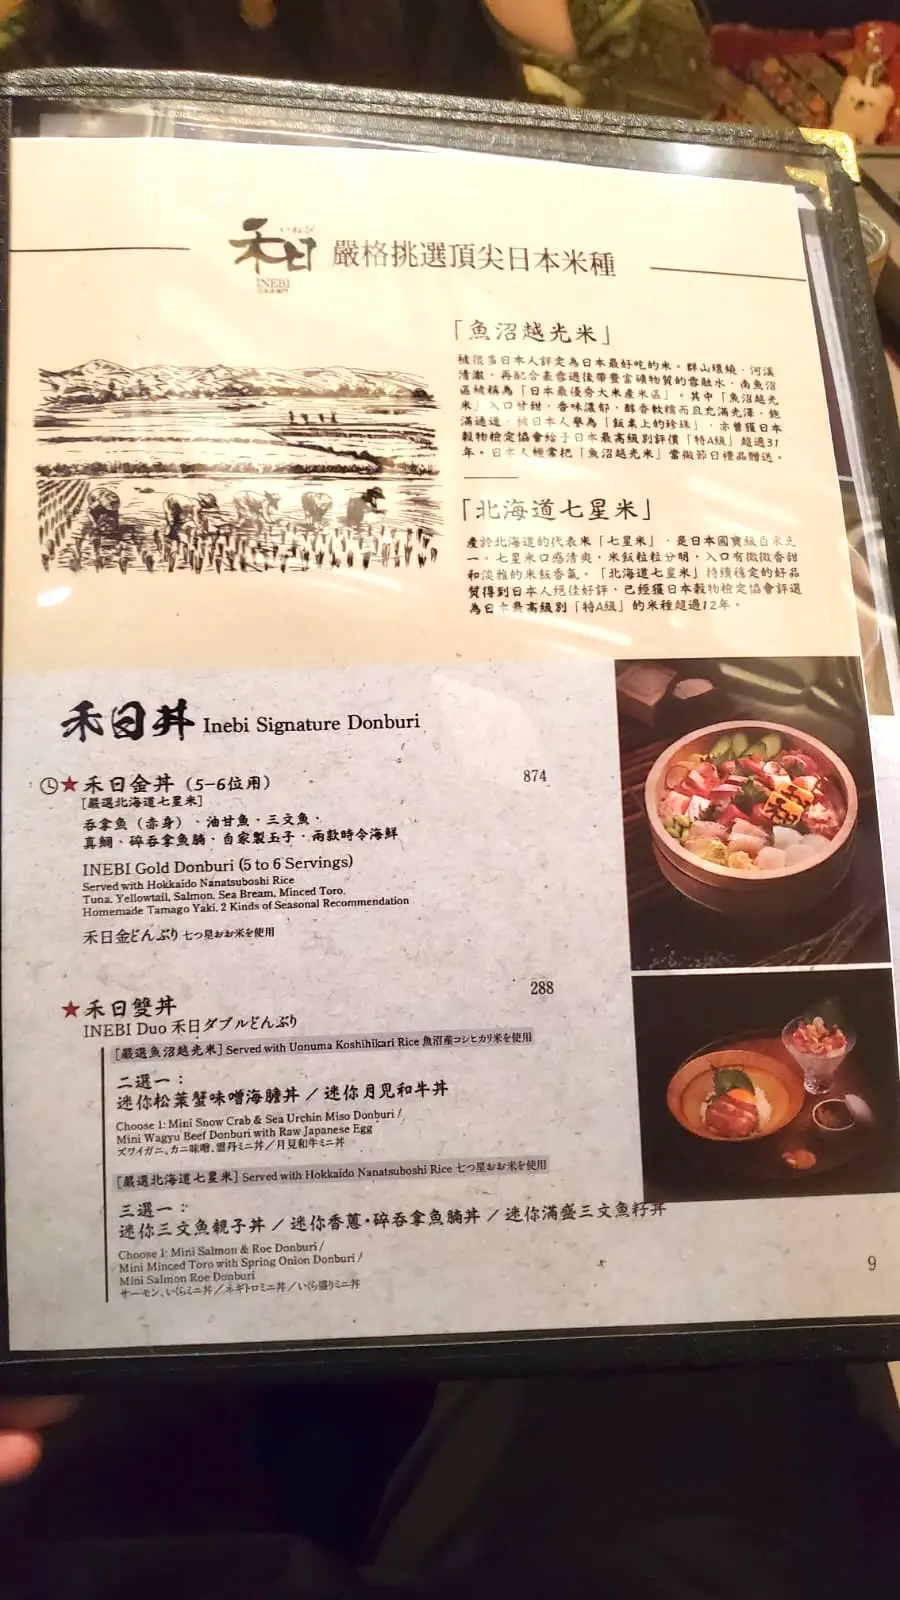 いねび
禾日
INEBI
嚴格挑選頂尖日本米種
「魚沼越光米」
被很多日本人評定為日本最好吃的米。群山環繞,河溪
清澈,再配合豪雪過後帶豐富礦物質的雪融水,南魚沼
區被稱為「日本最優秀大米產米區」。其中「魚沼越光
米」入口甘甜,香味濃郁,醇香軟糯而且充滿光澤,飽
滿通透,被日本人譽為「飯桌上的珍珠」,亦曾獲日本
穀物檢定協會給予日本最高級別評價「特A級」超過31
年。日本人經常把「魚沼越光米」當做節日禮品贈送。
「北海道七星米」
產於北海道的代表米「七星米」,是日本國寶級白米之
一。七星米口感清爽,米飯粒粒分明,入口有微微香甜
和淡雅的米飯香氣。「北海道七星米」持續穩定的好品
質得到日本人絕佳好評,已經獲日本穀物檢定協會評選
為日本最高級別「特A級」的米種超過12年。
禾日丼 Inebi Signature Donburi
禾日金丼(5-6位用) 874
[嚴選北海道七星米]
吞拿魚(赤身)、油甘魚、三文魚、
真鯛、碎吞拿魚腩、自家製玉子、兩款時令海鮮
INEBI Gold Donburi (5 to 6 Servings)
Served with Hokkaido Nanatsuboshi Rice
Tuna, Yellowtail, Salmon, Sea Bream, Minced Toro,
Homemade Tamago Yaki, 2 Kinds of Seasonal Recommendation
禾日金どんぶり 七つ星おお米を使用
禾日雙丼 288
INEBI Duo 禾日ダブルどんぶり
[嚴選魚沼越光米] Served with Uonuma Koshihikari Rice 魚沼産コシヒカリ米を使用
二選一:
迷你松葉蟹味噌海膽丼 / 迷你月見和牛丼
Choose 1: Mini Snow Crab & Sea Urchin Miso Donburi /
Mini Wagyu Beef Donburi with Raw Japanese Egg
ズワイガニ、カニ味噌、雲丹ミニ丼/月見和牛ミニ丼
[嚴選北海道七星米] Served with Hokkaido Nanatsuboshi Rice 七つ星おお米を使用
三選一:
迷你三文魚親子丼 / 迷你香蔥・碎吞拿魚腩丼 / 迷你滿盛三文魚籽丼
Choose 1: Mini Salmon & Roe Donburi /
Mini Minced Toro with Spring Onion Donburi /
Mini Salmon Roe Donburi
サーモン、いくらミニ丼/ネギトロミニ丼/いくら盛りミニ丼
9